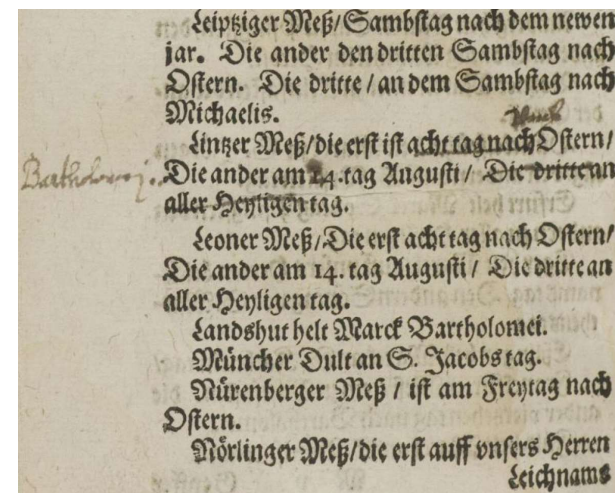 Leipziger Meß/Sambstag nach dem newen
jar. Die ander den dritten Sambstag nach
Ostern. Die dritte / an dem Sambstag nach
Michaelis.
Lintzer Meß/die erst ist acht tag nach Ostern/
Bartholomej. Die ander am 24.tag Augusti / Die dritte an
aller Heyligen tag.
Leoner Meß/Die erst acht tag nach Ostern/
Die ander am 14. tag Augusti / Die dritte an
aller Heyligen tag.
Landshut helt Marck Bartholomei.
Müncher Dult an S. Jacobs tag.
Nürenberger Meß / ist am Freytag nach
Ostern.
Nörlinger Meß/die erst auff vnsers Herren
Leichnams